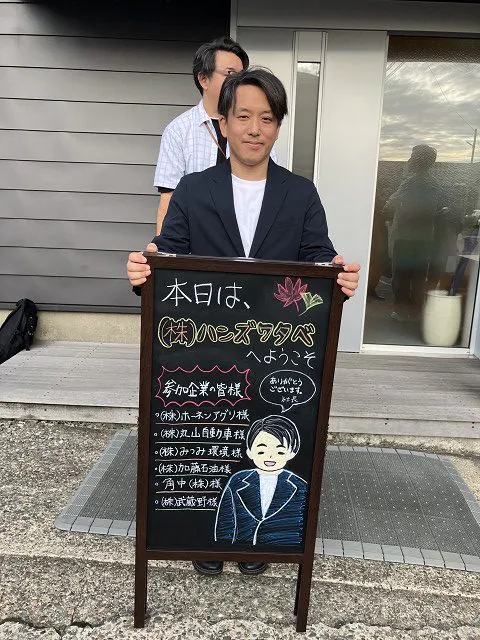 本日は、
(株)ハンズワタベ
へようこそ
参加企業の皆様
ありがとう
ございます。
・(株)ホーネンアグリ様
・(株)丸山自動車様
・(株)みつみ環境様
・(株)加藤石油様
・角中(株)様
・(株)武蔵野様